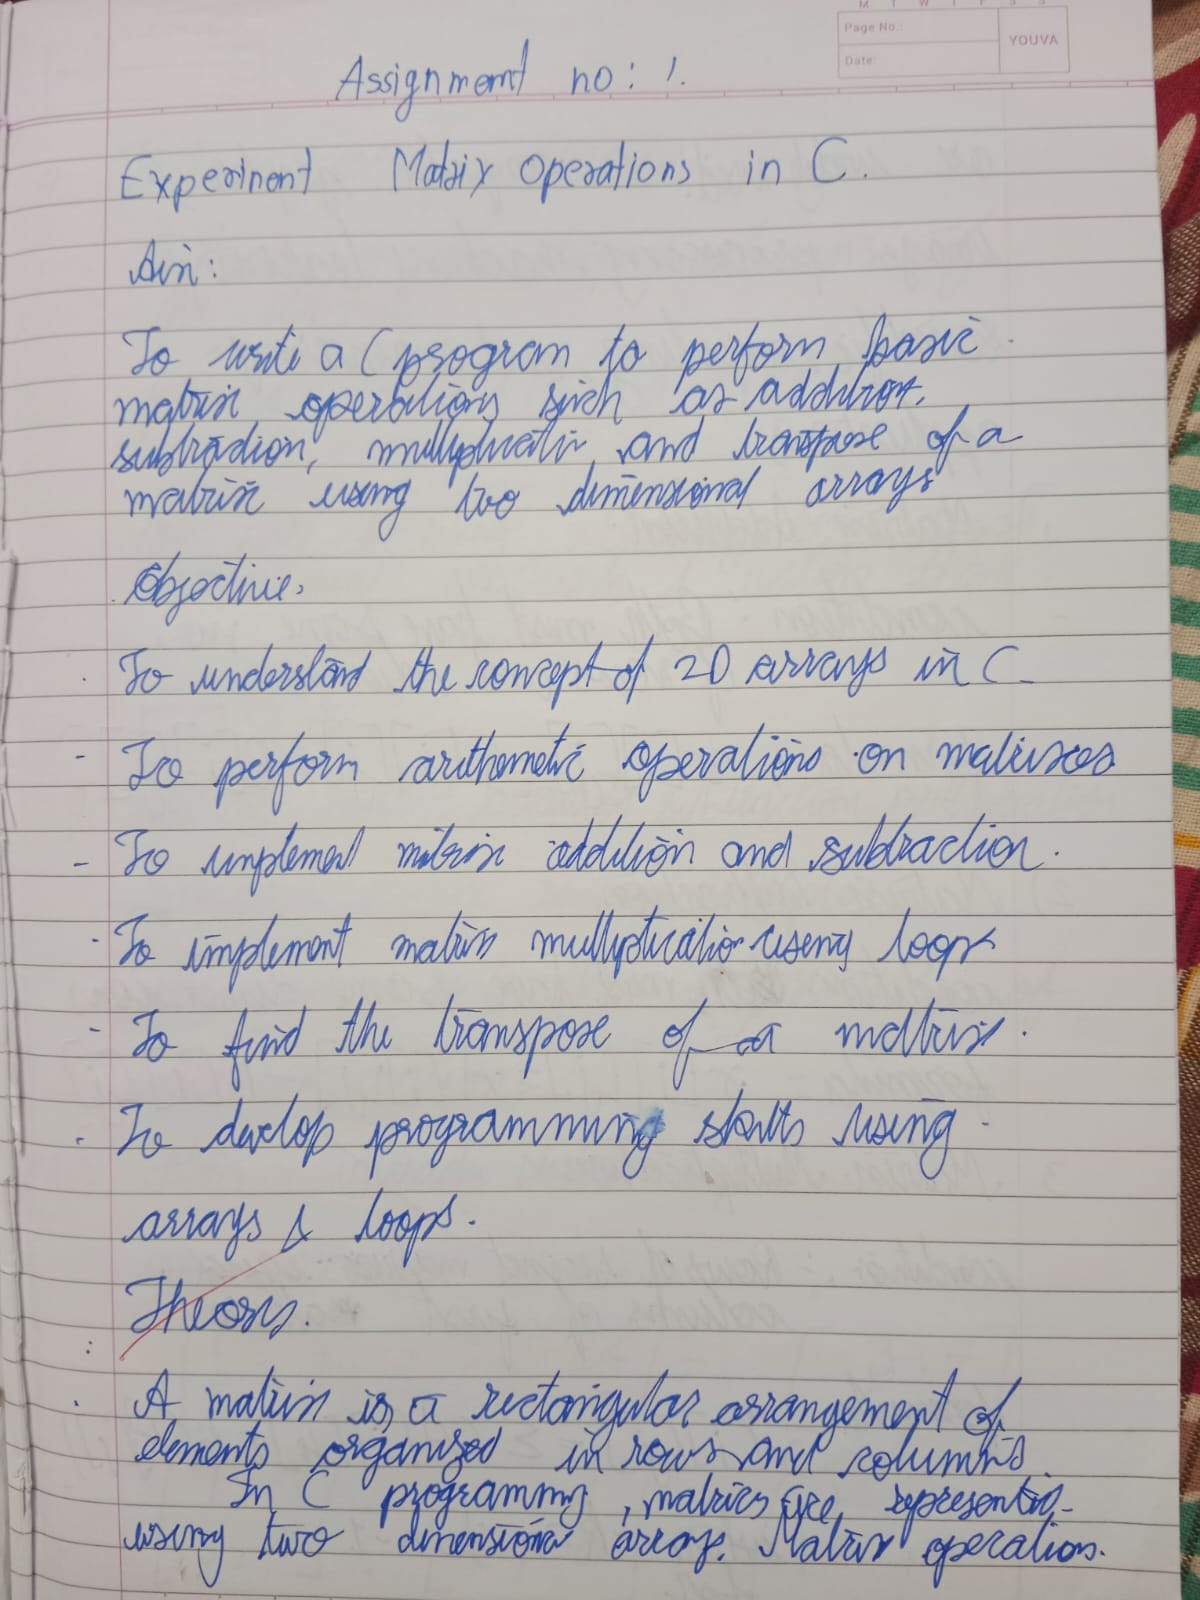 M T W T F S S
Page No.:
YOUVA
Date:
Assignment no: 1.
Experiment Matrix Operations in C.
Aim:
To write a C program to perform basic
matrix operations such as addition,
subtraction, multiplication and transpose of a
matrix using two dimensional arrays
Objective:
To understand the concept of 2D arrays in C.
- To perform arithmetic operations on matrixes
- To implement matrix addition and subtraction.
- To implement matrix multiplication using loops
- To find the transpose of a matrix.
- To develop programming skills using
arrays & loops.
Theory.
A matrix is a rectangular arrangement of
elements organized in rows and columns.
In C programming, matrices are represented
using two dimensional arrays. Matrix operations.